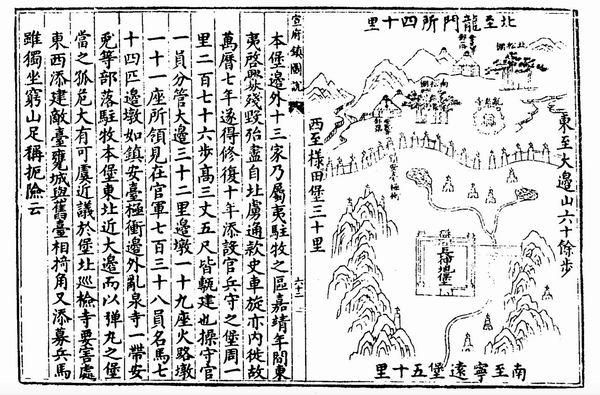 北至龍門所四十里
東至大邊山六十餘步
西至樣田堡三十里
南至寧遠堡五十里
長伸地堡
宣府鎮圖說
六十二
本堡邊外十三家乃屬夷駐牧之區嘉靖年間東
夷啓釁殘毀殆盡自北虜通款史車旋亦內徙故
萬曆七年遂得修復十年添設官兵守之堡周一
里二百七十六步高三丈五尺皆甎建也操守官
一員分管大邊三十二里邊墩一十九座火路墩
一十一座所領見在官軍七百三十八員名馬七
十四匹邊墩如鎮安臺極衝邊外亂泉寺一帶安
兎等部落駐牧本堡東北近大邊而以彈丸之堡
當之孤危大有可虞近議於堡北巡檢寺要害處
東西添建敵臺甕城與舊臺相掎角又添募兵馬
雖獨坐窮山足稱扼險云